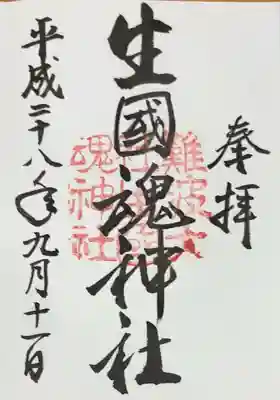 奉拝
生國魂神社
難波大
社生國
魂神社
平成二十八年九月十一日